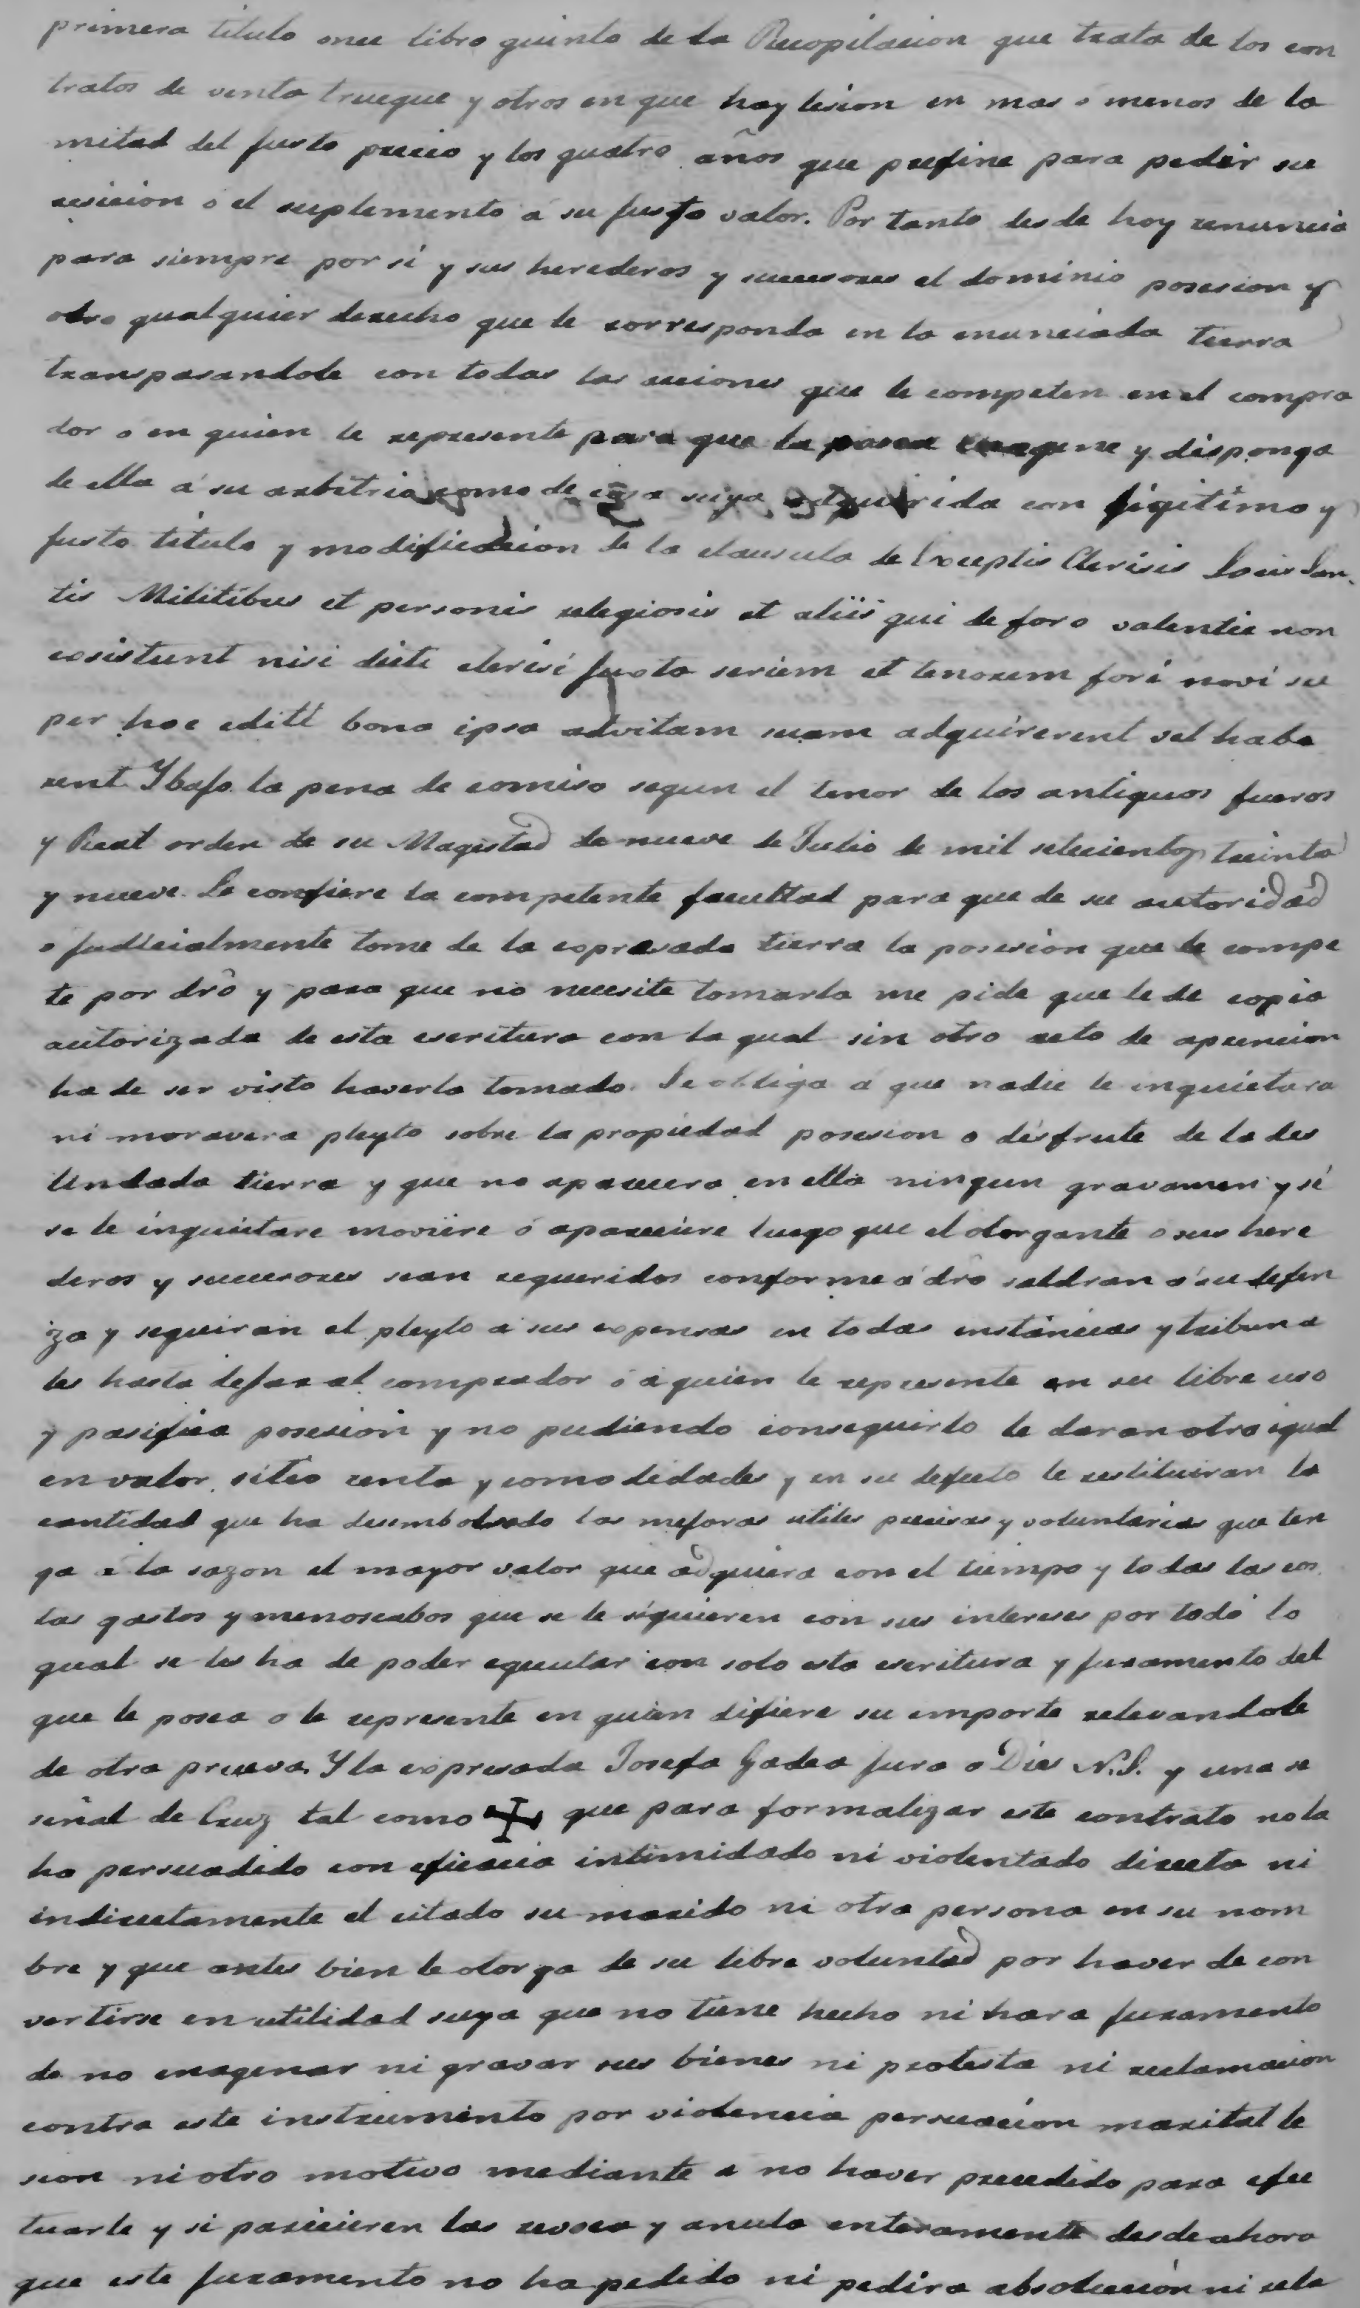 primera titulo once libro quinto de la Recopilacion que trata de los con
tratos de venta trueque y otros en que hay lesion en mas o menos de la
mitad del justo precio y los quatro años que prefine para pedir su
recicion o el suplemento a su justo valor. Por tanto desde hoy renuncia
para siempre por sí y sus herederos y succesores el dominio posesion y
otro qualquier derecho que le corresponda en la enunciada tierra
transpasandole con todas las acciones que le competen en el compra
dor o en quien le represente para que la posea enagene y disponga
de ella a su arbitrio como de cosa suya adquirida con ligitimo y
justo titulo y modificacion de la clausula de Exceptis Clerisis Locis San
tis Militibus et personis relegiosis et aliis qui de foro valentie non
existunt nisi dicti clerisi juxta seriem et tenorem fori novi su
per hoc editi bona ipsa advitam suam adquirerent vel habe
rent. Y bajo la pena de comiso segun el tenor de los antiguos fueros
y Real orden de su Magestad de nueve de Julio de mil setecientos treinta
y nueve. Le confiere la competente facultad para que de su autoridad
o judicialmente tome de la expresada tierra la posesion que le compe
te por dro y para que no necesite tomarla me pide que le de copia
autorizada de esta escritura con la qual sin otro acto de aprencion
ha de ser visto haverla tomado. Se obliga a que nadie le inquietara
ni moravera pleyto sobre la propiedad posesion o disfrute de la des
lindada tierra y que no aparecera en ella ningun gravamen y si
se le inquietare moviere o apareciere luego que el otorgante o sus here
deros y succesores sean requeridos conforme a dro saldran a su defen
za y seguiran el pleyto a sus expensas en todas instancias y tribuna
les hasta dejar al comprador o a quien le represente en su libre uso
y pasifica posesion y no pudiendo conseguirlo le daran otra igual
en valor sitio renta y comodidades y en su defecto le restituiran la
cantidad que ha desembolsado las mejoras utiles precisas y voluntarias que ten
ga a la sazon el mayor valor que adquiera con el tiempo y todas las cos
tas gastos y menoscabos que se le siguieren con sus intereses por todo lo
qual se les ha de poder equcutar con solo esta escritura y juramento del
que le posea o le represente en quien difiere su importe relevandole
de otra prueva. Y la expresada Josefa Gadea jura a Dios N.S. y una se
señal de Cruz tal como ✝ que para formalizar este contrato no la
ha persuadido con eficacia intimidado ni violentado directa ni
indirectamente el citado su marido ni otra persona en su nom
bre y que antes bien le otorga de su libre voluntad por haver de con
vertirse en utilidad suya que no tiene hecho ni hara juramento
de no enagenar ni gravar sus bienes ni protesta ni reclamacion
contra este instrumento por violencia persuacion marital le
sion ni otro motivo mediante a no haver precedido para efec
tuarle y si parecieren las revoca y anula enteramente desde ahora
que este juramento no ha pedido ni pedira absolucion ni rela